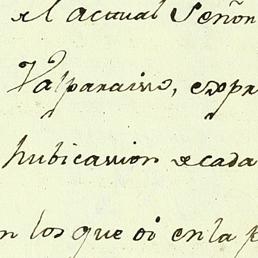 el actual Señor
Valparaiso, expr
hubicassion de cada
n los que oi en la p